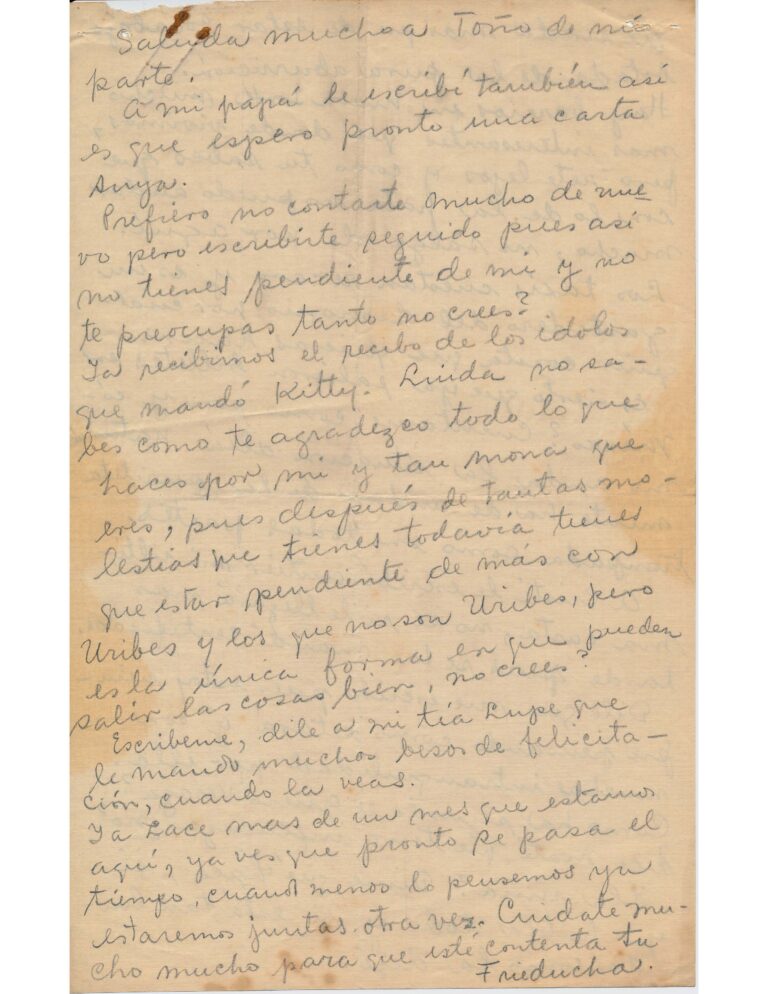 Saluda mucho a Toño de mi
parte.
A mi papá le escribí también así
es que espero pronto una carta
suya.
Prefiero no contarte mucho de nue-
vo pero escribirte seguido pues así
no tienes pendiente de mi y no
te preocupas tanto no crees?
Ya recibimos el recibo de los idolos
que mandó Kitty. Linda no sa-
bes como te agradezco todo lo que
haces por mi y tan mona que
eres, pues después de tantas mo-
lestias que tienes todavía tienes
que estar pendiente de más con
Uribes y los que no son Uribes, pero
es la única forma en que pueden
salir las cosas bien, no crees?
Escribeme, dile a mi tía Lupe que
le mando muchos besos de felicita-
ción, cuando la veas.
Ya hace mas de un mes que estamos
aquí, ya ves que pronto se pasa el
tiempo, cuand menos lo pensemos ya
estaremos juntas otra vez. Cuidate mu-
cho mucho para que esté contenta tu
Frieducha.